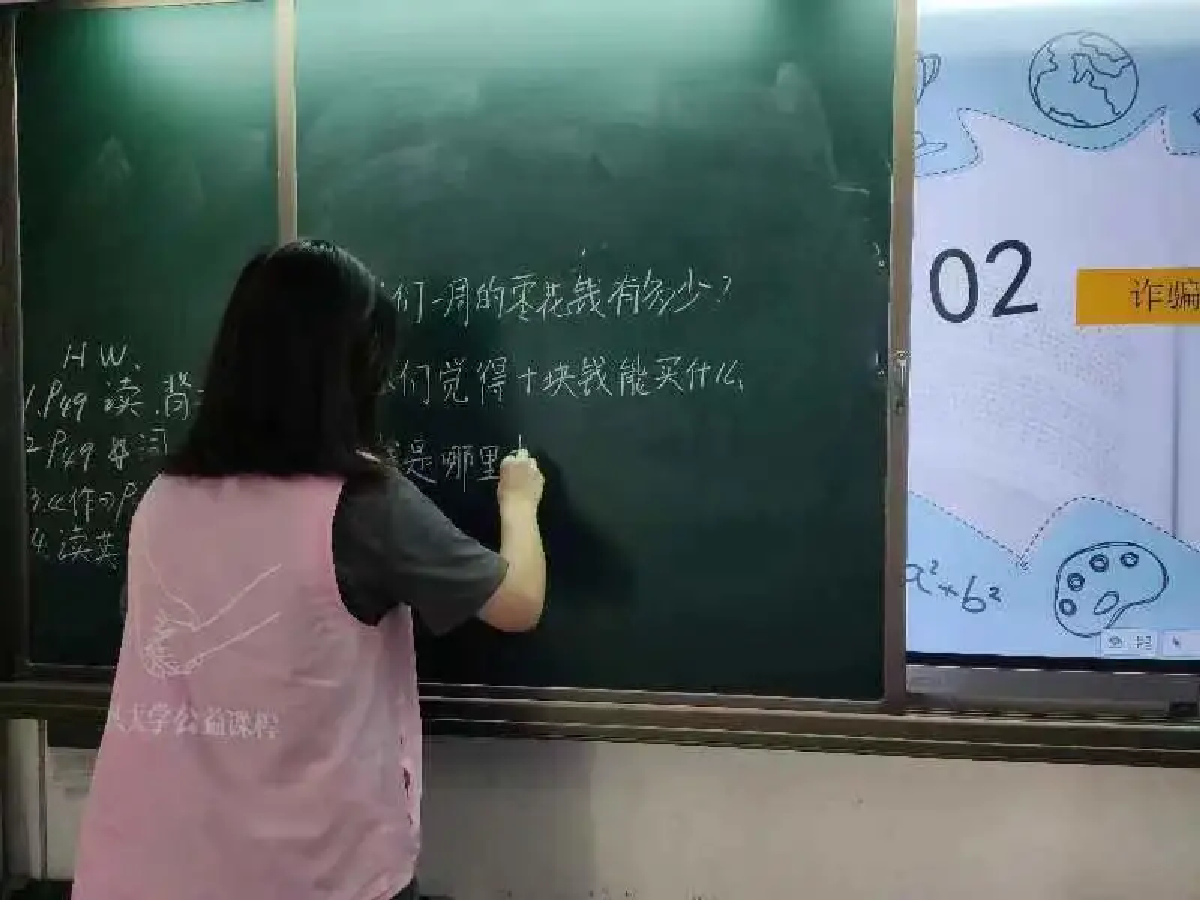 H W.
1.P49 读.背
2.P49
3.《作》P
4.读英
们一周的零花钱有多少?
们觉得十块钱能买什么
是哪里
大学公益课程
02
诈骗
a²+b²